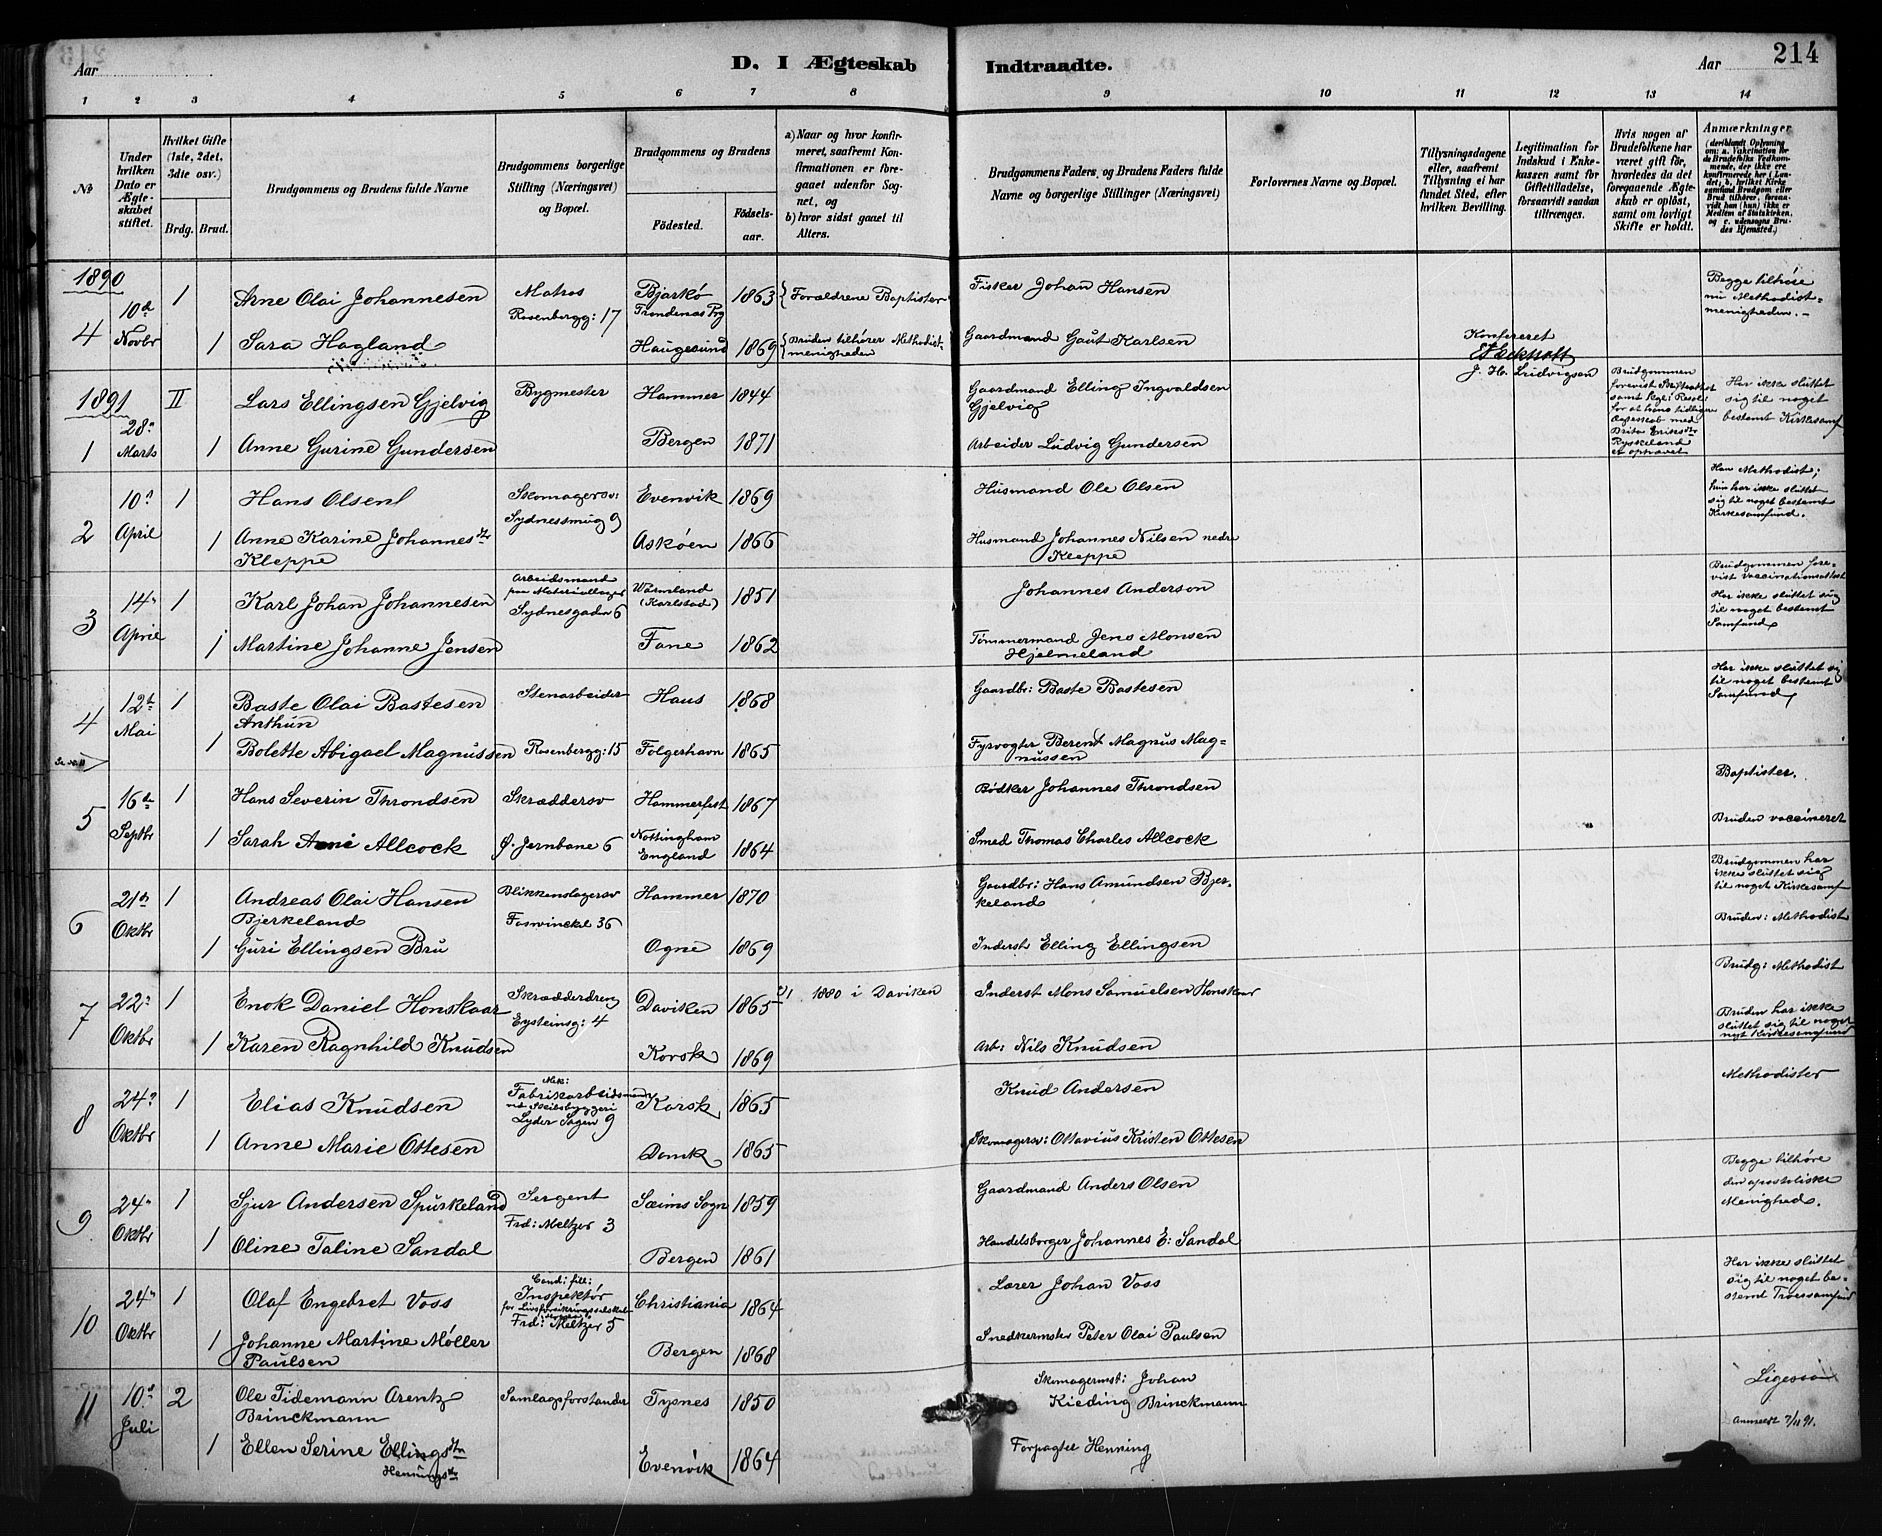 Aar
D. I Ægteskab
Indtraadte.
Aar
214
1 2 3 4 5 6 7 8 9 10 11 12 13 14
No
Under hvilken Dato er Ægteskabet stiftet.
Hvilket Gifte (1ste, 2det, 3die osv.)
Brdg. Brud.
Brudgommens og Brudens fulde Navne
Brudgommens borgerlige Stilling (Næringsvei) og Bopæl.
Brudgommens og Brudens
Fødested.
Fødselsaar.
a) Naar og hvor konfirmeret, saafremt Konfirmationen er foregaaet udenfor Sognet, og
b) hvor sidst gaaet til Alters.
Brudgommens Faders, og Brudens Faders fulde Navne og borgerlige Stillinger (Næringsvei)
Forlovernes Navne og Bopæl.
Tillysningsdagene eller, saafremt Tillysning ei har fundet Sted, efter hvilken Bevilling.
Legitimation for Indskud i Enkekassen samt for Giftetilladelse, forsaavidt saadan tiltrænges.
Hvis nogen af Brudefolkene har været gift før, hvorledes da det foregaaende Ægteskab er opløst, samt om lovligt Skifte er holdt.
Anmærkninger
1890
4 10de Novbr 1 Arne Olai Johannesen Matros Rosenbergg: 17 Bjarkö Trondenas Prg 1863 Forældrene Baptister Fisker Johan Hansen Begge tilhöre nu Methodistmenigheden.
1 Sara Hagland Haugesund 1869 Bruden tilhører Methodistmenigheden Gaardmand Gaut Karlsen
Konfereret
J. H. Ludvigsen
1891
1 28. Marts II Lars Ellingsen Gjelvig Bygmester Hammer 1844 Gaardmand Elling Ingvaldsen Gjelvig Brudgommen forevist Skifteattest samt Kgl: Resol: for at hans tidligere Ægteskab med Brita Eriksdtr Ryskeland et ophævet Har ikke sluttet sig til noget bestemt Kirkesamf
1 Anne Gurine Gundersen Bergen 1871 Arbeider Ludvig Gundersen
2 10. April 1 Hans Olsen Skomagersv: Sydnessmug 9 Evenvik 1869 Husmand Ole Olsen Han Methodist; hun har ikke sluttet sig til noget bestemt Kirkesamfund.
1 Anne Karine Johannesdtr Kleppe Askøen 1866 Husmand Johannes Nilsen nedre Kleppe
3 14. April 1 Karl Johan Johannesen Arbeidsmand paa Materiallager Sydnesgaden 6 Wärmland (Karlstad) 1851 Johannes Anderson Brudgommen forevist vaccinationsattest Har ikke sluttet sig til noget bestemt Samfund
1 Martine Johanne Jensen Fane 1862 Tømmermand Jens Monsen Hjelmeland
4 12te Mai 1 Baste Olai Bastesen Anthun Stenarbeider Haus 1868 Gaardbr: Baste Bastesen Har ikke sluttet sig til noget bestemt Samfund
1 Bolette Abigael Magnussen Rosenbergg: 15 Folgerhavn 1865 Fyrvogter Berent Magnus Magnussen
5 16de Septbr 1 Hans Severin Throndsen Skræddersv Hammerfest 1867 Bødker Johannes Throndsen Baptister.
1 Sarah Anni Allcock Ø. Jernbane 6 Nottingham England 1864 Smed Thomas Charles Allcock Bruden vaccineret
6 21de Oktbr 1 Andreas Olai Hansen Bjerkeland Blikkenslagersv Foswinckel 36 Hammer 1870 Gaardbr: Hans Amundsen Bjerkeland Brudgommen har ikke sluttet sig til noget Kirkesamf
1 Guri Ellingsen Bru Ogne 1869 Inderst Elling Ellingsen Bruden: Methodist
7 22. Oktbr 1 Enok Daniel Honskaar Skrædderdreng Eysteinsg: 4 Daviken 1865 1880 i Daviken Inderst Mons Samuelsen Honskaar Brudg: Methodist
1 Karen Ragnhild Knudsen Korsk 1869 Arb: Nils Knudsen Bruden har ikke sluttet sig til noget nyt Kirkesamfund
8 24. Oktbr 1 Elias Knudsen Mek: Fabrikarbeidsmand ved Skibsbyggeri Lyder Sagen 9 Korsk 1865 Knud Andersen Methodister
1 Anne Marie Ottesen Domk 1865 Skomagersv: Ottavius Kristen Ottesen
9 24. Oktbr 1 Sjur Andersen Spurkeland Sergent Frd: Meltzer 3 Sæims Sogn 1859 Gaardmand Anders Olsen Begge tilhøre den apostoliske Menighed.
1 Oline Taline Sandal Bergen 1861 Handelsborger Johannes E: Sandal
10 24. Oktbr 1 Olaf Engebret Voss Cand: fill: Inspektør for Livsforsikringsselskab Frd: Meltzer 5 Christiania 1864 Lærer Johan Voss Har ikke sluttet sig til noget bestemt Troessamfund
1 Johanne Martine Møller Paulsen Bergen 1868 Snedkermster Peter Olai Paulsen
11 10. Juli 2 Ole Tidemann Arentz Brinckmann Samlagsforstander Tysnes 1850 Skomagermst: Johan Kieding Brinckmann
1 Ellen Serine Ellingsdtr Henningsdtr Evenvik 1864 Forpagter Henning Anmeldt 7/11 91.